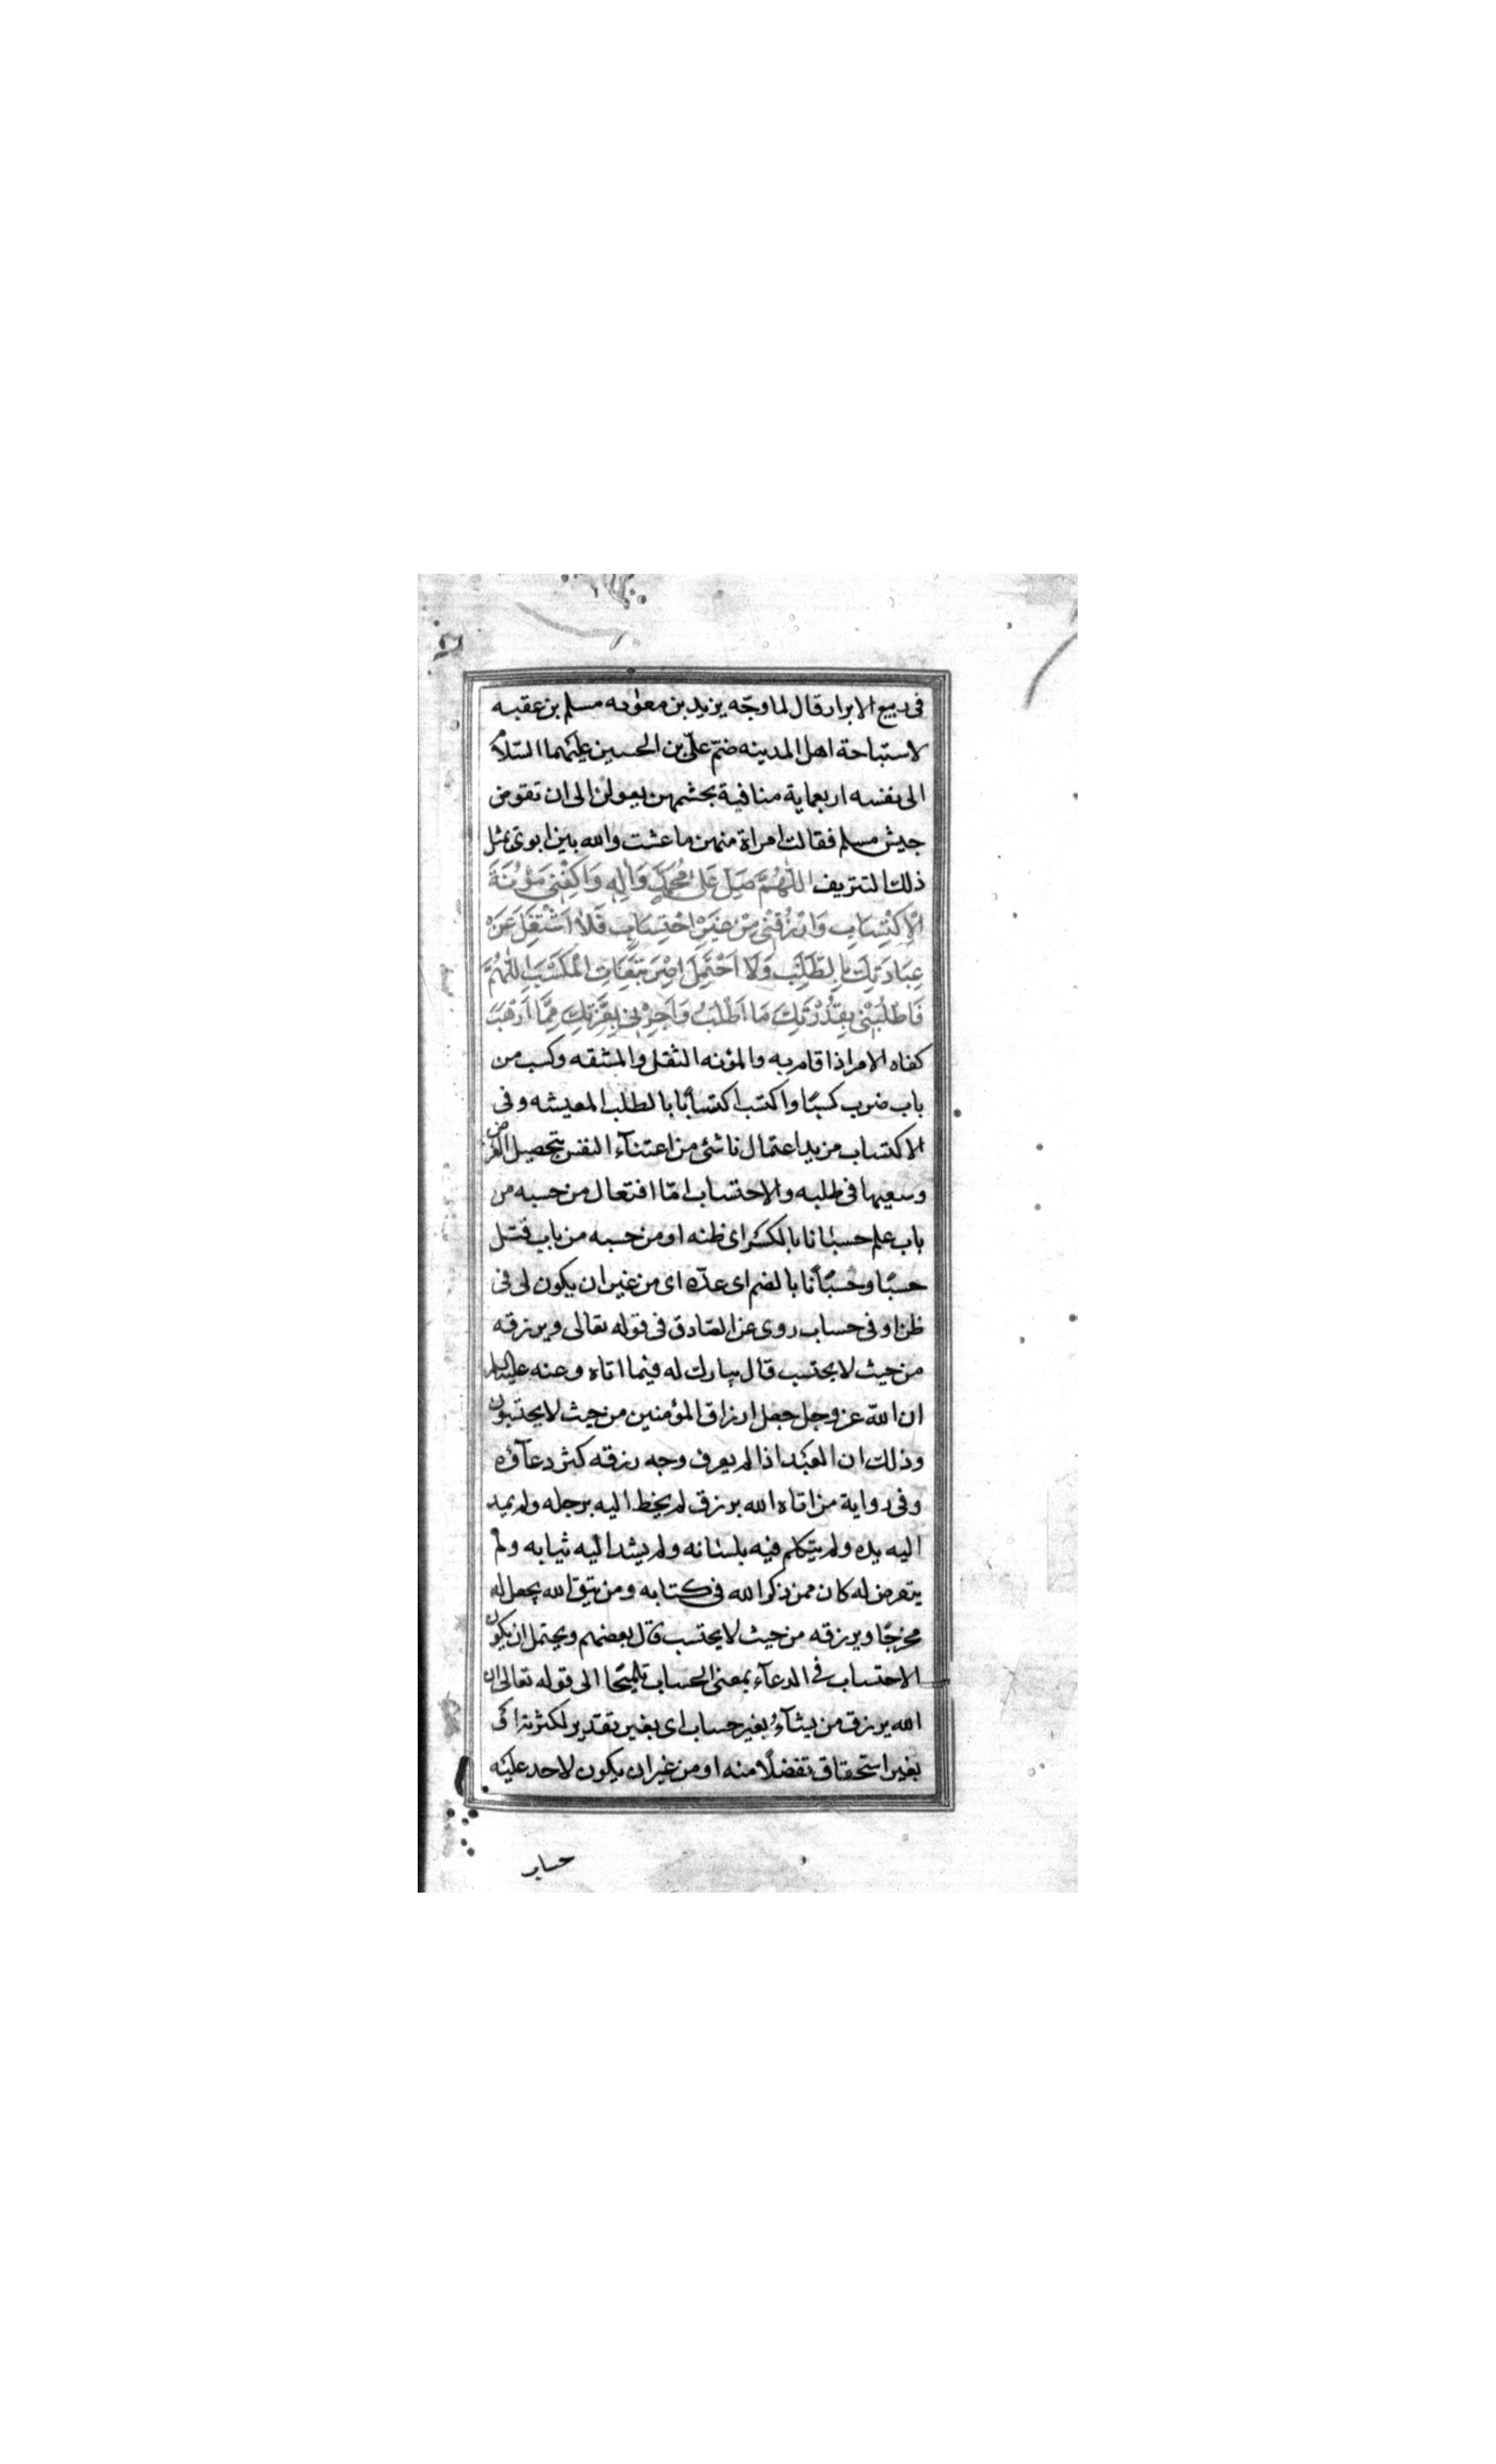 فى ربيع الابرار قال لما وجّه يزيد بن معٰويه مسلم بن عقبه
لاستباحة اهل المدينه ضمّ علىّ بن الحسين عليهما السّلام
الى نفسه اربعماية منافية بحشمهن يعولهن الى ان تقوض
جيش مسلم فقالت امراة منهن ما عشت والله بين ابوى بمثل
ذلك التتريف اللّٰهُمَّ صَلِّ عَلىٰ مُحَمَّدٍ وَاٰلِهِ وَاكْفِنى مَؤُنَةَ
الْاِكْتِسٰابِ وَارْزُقْنى مِنْ غَيْرِ احْتِسٰابٍ فَلاٰ اَشْتَغِلَ عَنْ
عِبٰادَتِكَ بِالطَّلَبِ وَلاٰ اَحْتَمِلَ اِصْرَ تَبَعٰاتِ الْمَكْسَبِ اللّٰهُمَّ
فَاطْلُبْنى بِقُدْرَتِكَ مٰا اَطْلُبُ وَاَجِرْنى بِعِزَّتِكَ مِمّٰا اَرْهَبُ
كفاه الامر اذا قام به والمؤنه الثقل والمشقه وكسب من
باب ضرب كسبًا واكتسب اكتسابًا بالطلب المعيشه وفى
الاكتساب مزيد اعتمال ناشئ من اعتنآء النفس بتحصيل الغرض
وسعيها فى طلبه والاحتساب امّا افتعال من حسبه من
باب علم حسبانا بالكسر اى ظنه او من حسبه من باب قتل
حسبًا وحُسبًانا بالضم اى عدّه اى من غير ان يكون لى فى
ظن او فى حساب روى عن الصّادق فى قوله تعالى ويرزقه
من حيث لا يحتسب قال يبارك له فيما اتاه وعنه عليه السلم
ان الله عز وجل جعل ارزاق المؤمنين من حيث لا يحتسبون
وذلك ان العبد اذا لم يعرف وجه رزقه كثر دعآؤه
وفى رواية من اتاه الله برزق لم يخط اليه برجله ولم يمد
اليه يده ولم يتكلم فيه بلسانه ولم يشد اليه ثيابه ولم
يتعرض له كان ممن ذكر الله فى كتابه ومن يتق الله يجعل له
مخرجًا ويرزقه من حيث لا يحتسب قال بعضهم ويحتمل ان يكون
الاحتساب فى الدعآء بمعنى الحساب تلميحًا الى قوله تعالى ان
الله يرزق من يشآءُ بغير حساب اى بغير تقدير لكثرته اى
بغير استحقاق تفضلًا منه او من غير ان يكون لاحد عليه
حساب